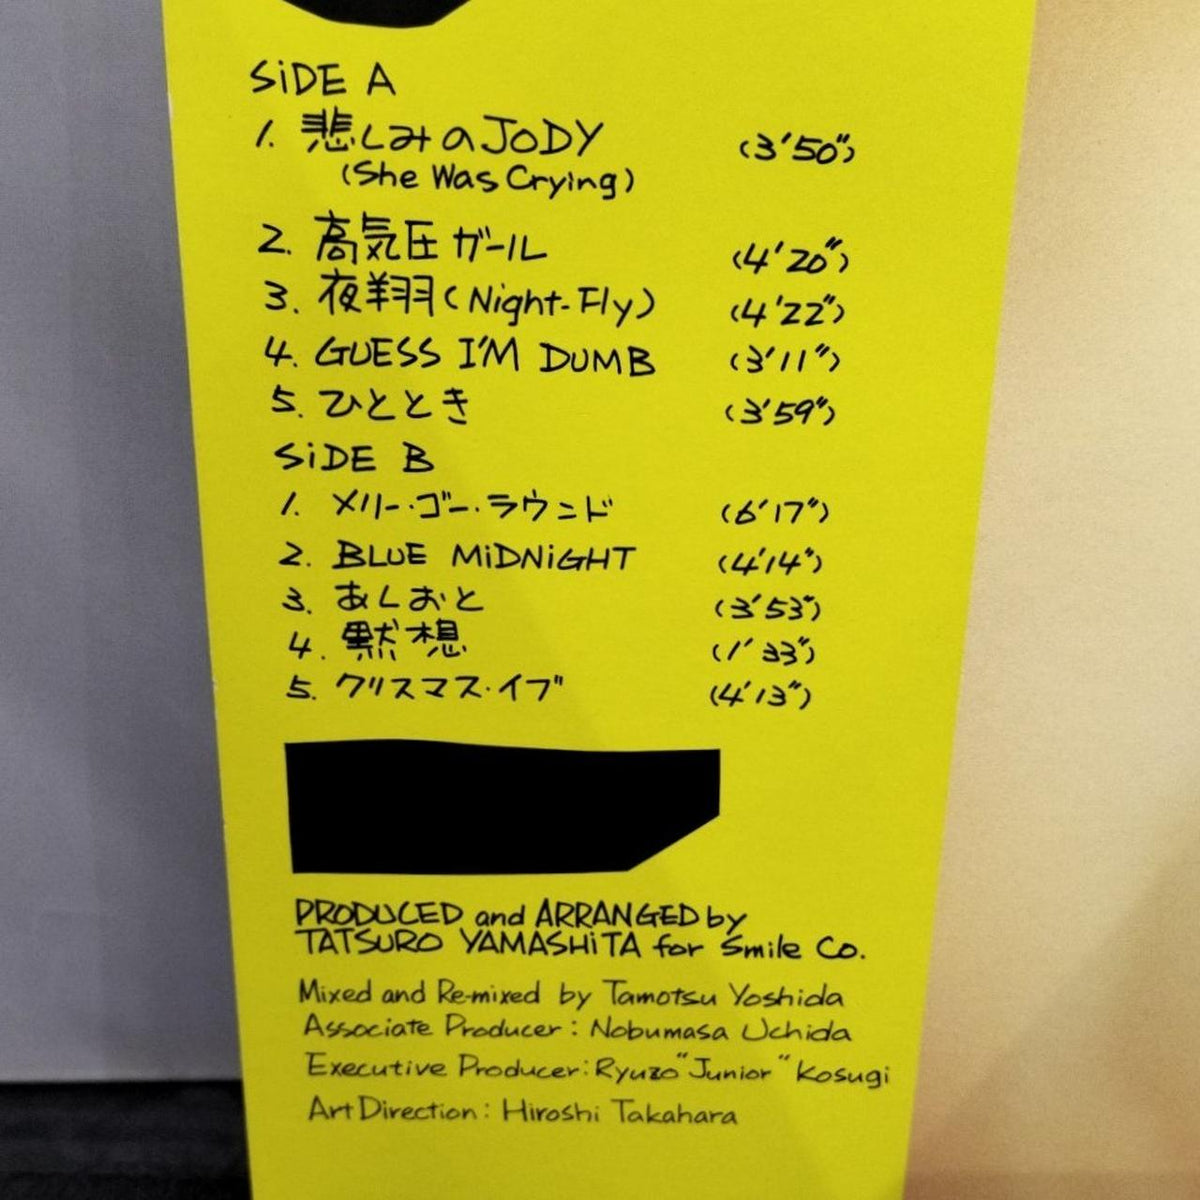 SiDE A
1. 悲しみのJODY (3'50")
(She Was Crying)
2. 高気圧ガール (4'20")
3. 夜翔(Night-Fly) (4'22")
4. GUESS I'M DUMB (3'11")
5. ひととき (3'59")
SiDE B
1. メリー・ゴー・ラウンド (6'17")
2. BLUE MiDNiGHT (4'14")
3. あしおと (3'53")
4. 黙想 (1'33")
5. クリスマス・イブ (4'13")
PRODUCED and ARRANGED by
TATSURO YAMASHiTA for Smile Co.
Mixed and Re-mixed by Tamotsu Yoshida
Associate Producer: Nobumasa Uchida
Executive Producer: Ryuzo "Junior" Kosugi
Art Direction: Hiroshi Takahara